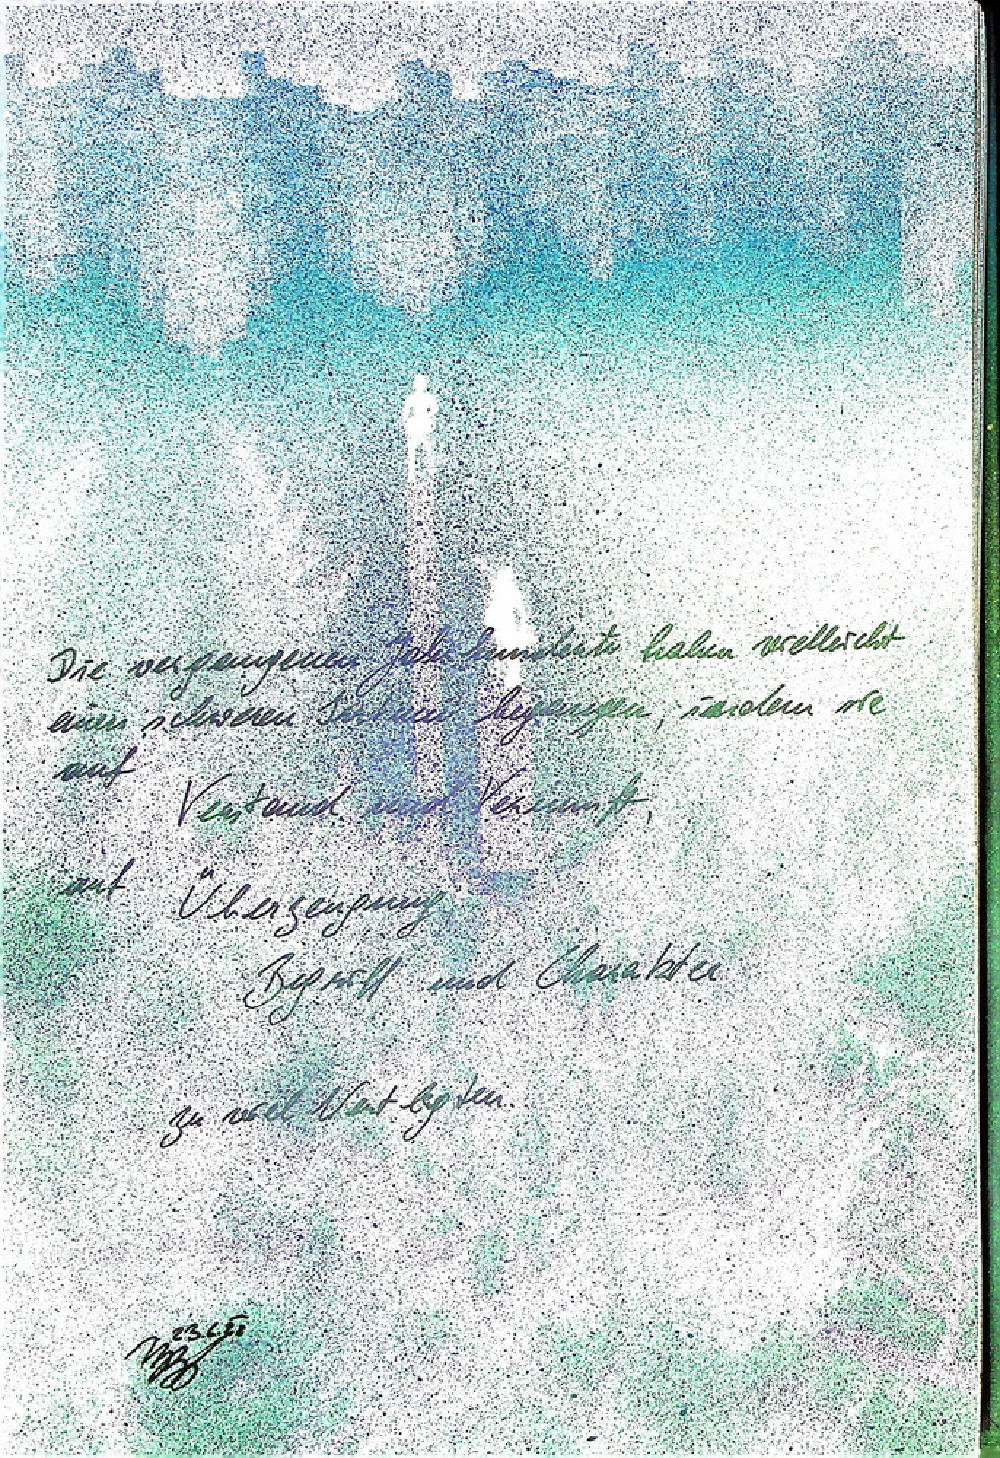 Die vergangenen Jahrhunderte haben vielleicht
einen schweren Irrtum begangen, indem sie
auf
Verstand und Vernunft,
auf Überzeugung
Begriff und Charakter
zu viel Wert legten.